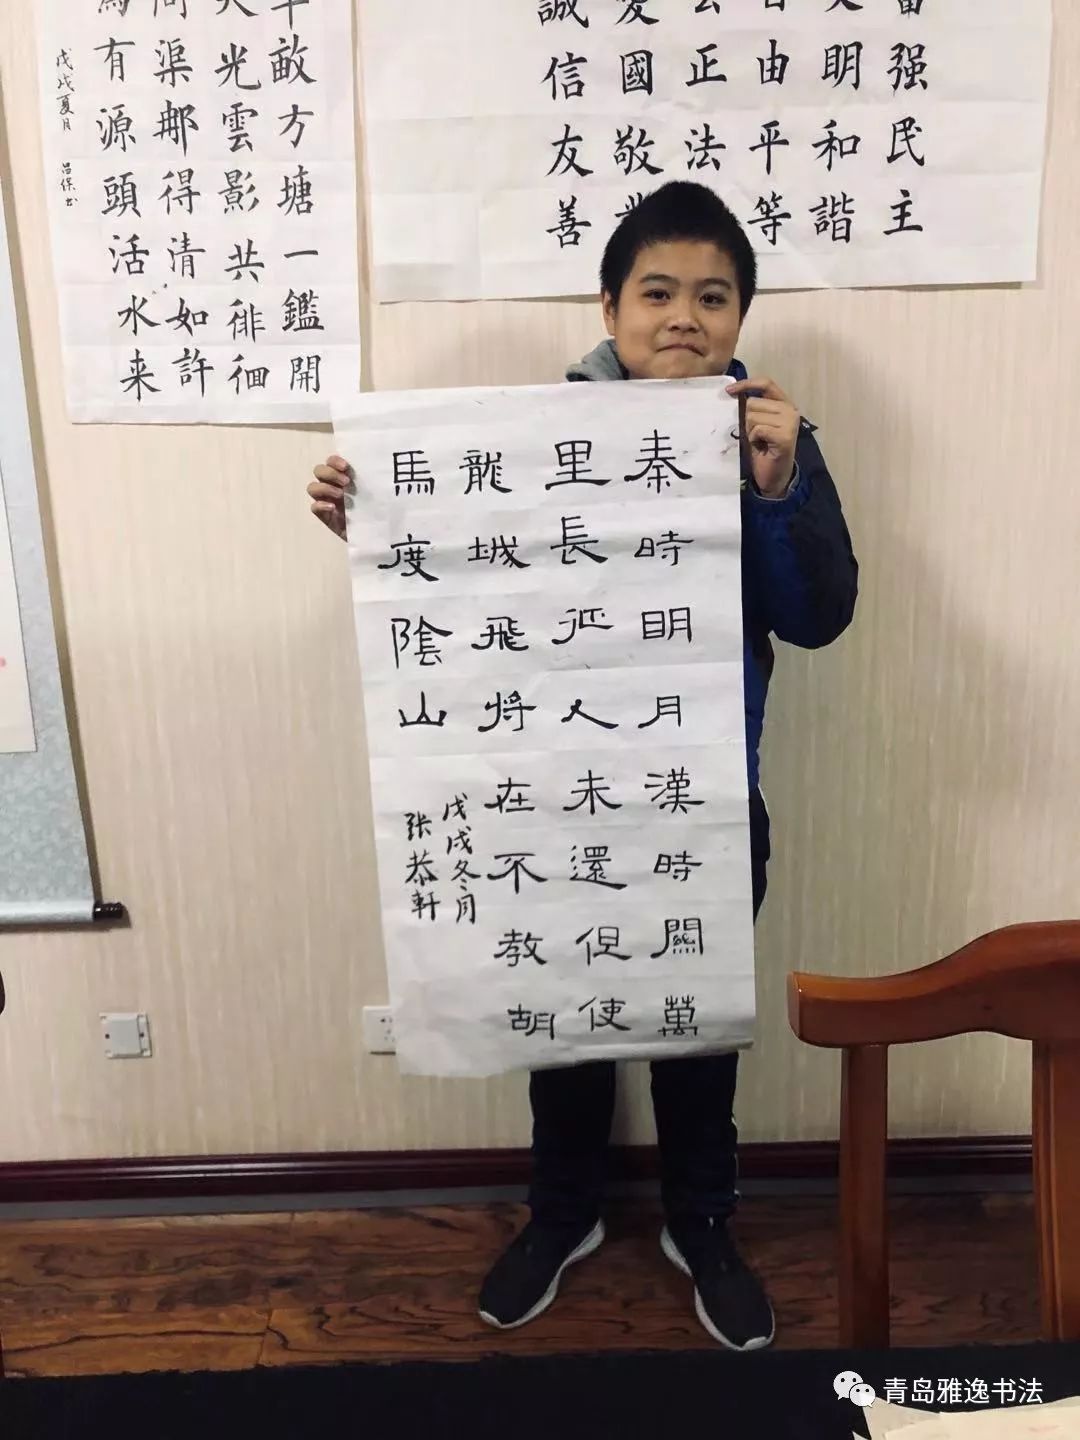 秦時明月漢時關萬
里長征人未還但使
龍城飛將在不教胡
馬度陰山
戊戌冬月
张恭軒
富强民主
文明和諧
自由平等
公正法
愛國敬業
誠信友善
半畝方塘一鑑開
天光雲影共徘徊
問渠那得清如許
為有源頭活水来
戊戌夏月
青岛雅逸书法